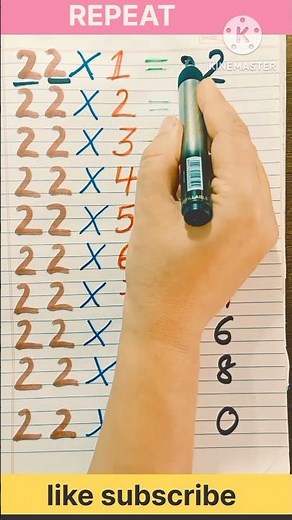 REPEAT
KINEMASTER
22 X 1 = 2
22 X 2 =
22 X 3
22 X 4
22 X 5
22 X 6
22 X
22 X 6
22 X 8
22 X 0
like subscribe